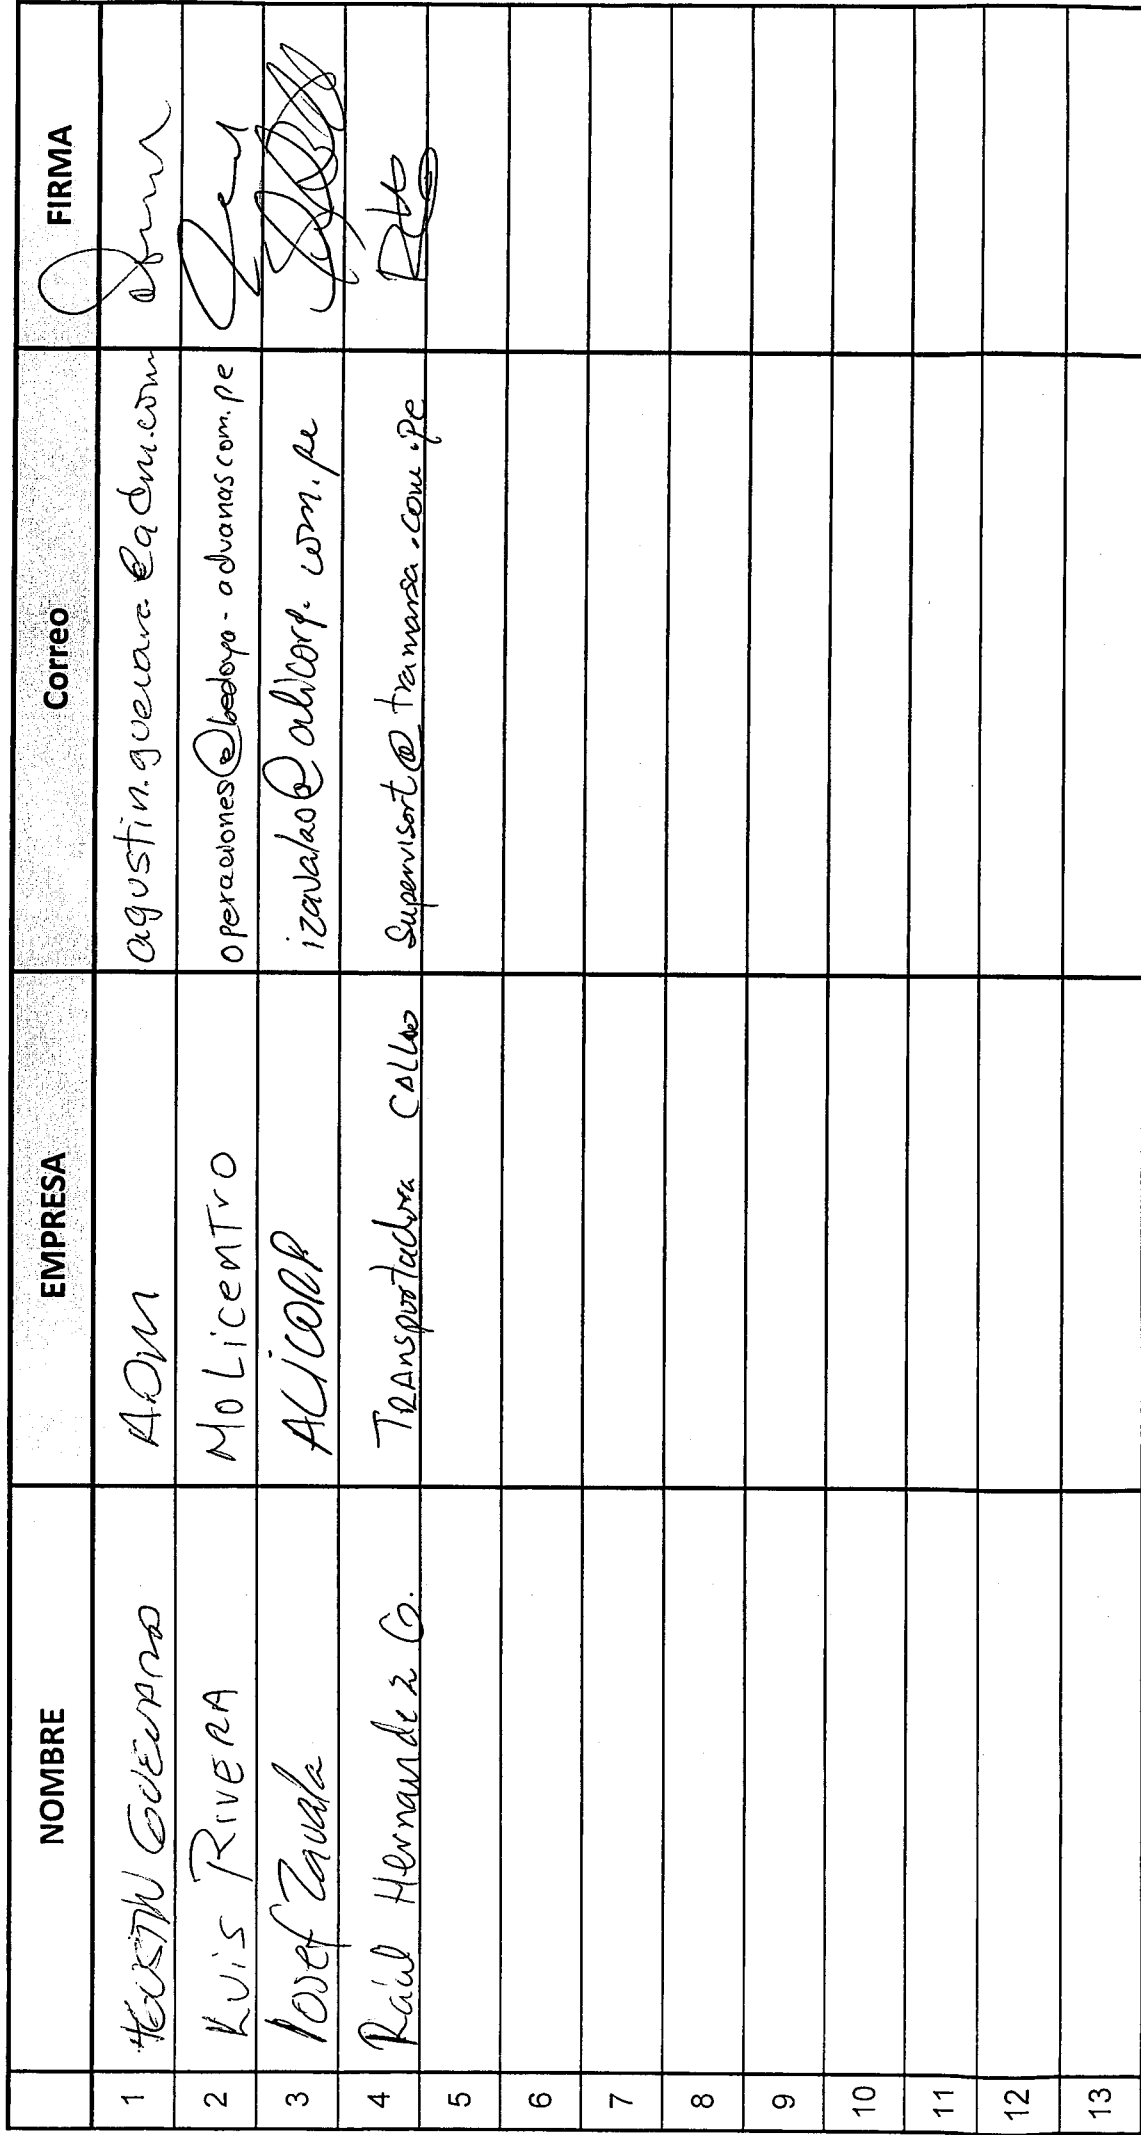 NOMBRE EMPRESA Correo FIRMA
1 AGUSTIN GUEVARA ADM agustin.guevara@adm.com
2 Luis RIVERA MoLicenTro operaciones@bedoya-aduanas.com.pe
3 Iosef Zavala ALICORP izavalao@alicorp.com.pe
4 Raúl Hernandez G. TRANsportadora CALLAO Supervisort@tramarsa.com.pe
5
6
7
8
9
10
11
12
13